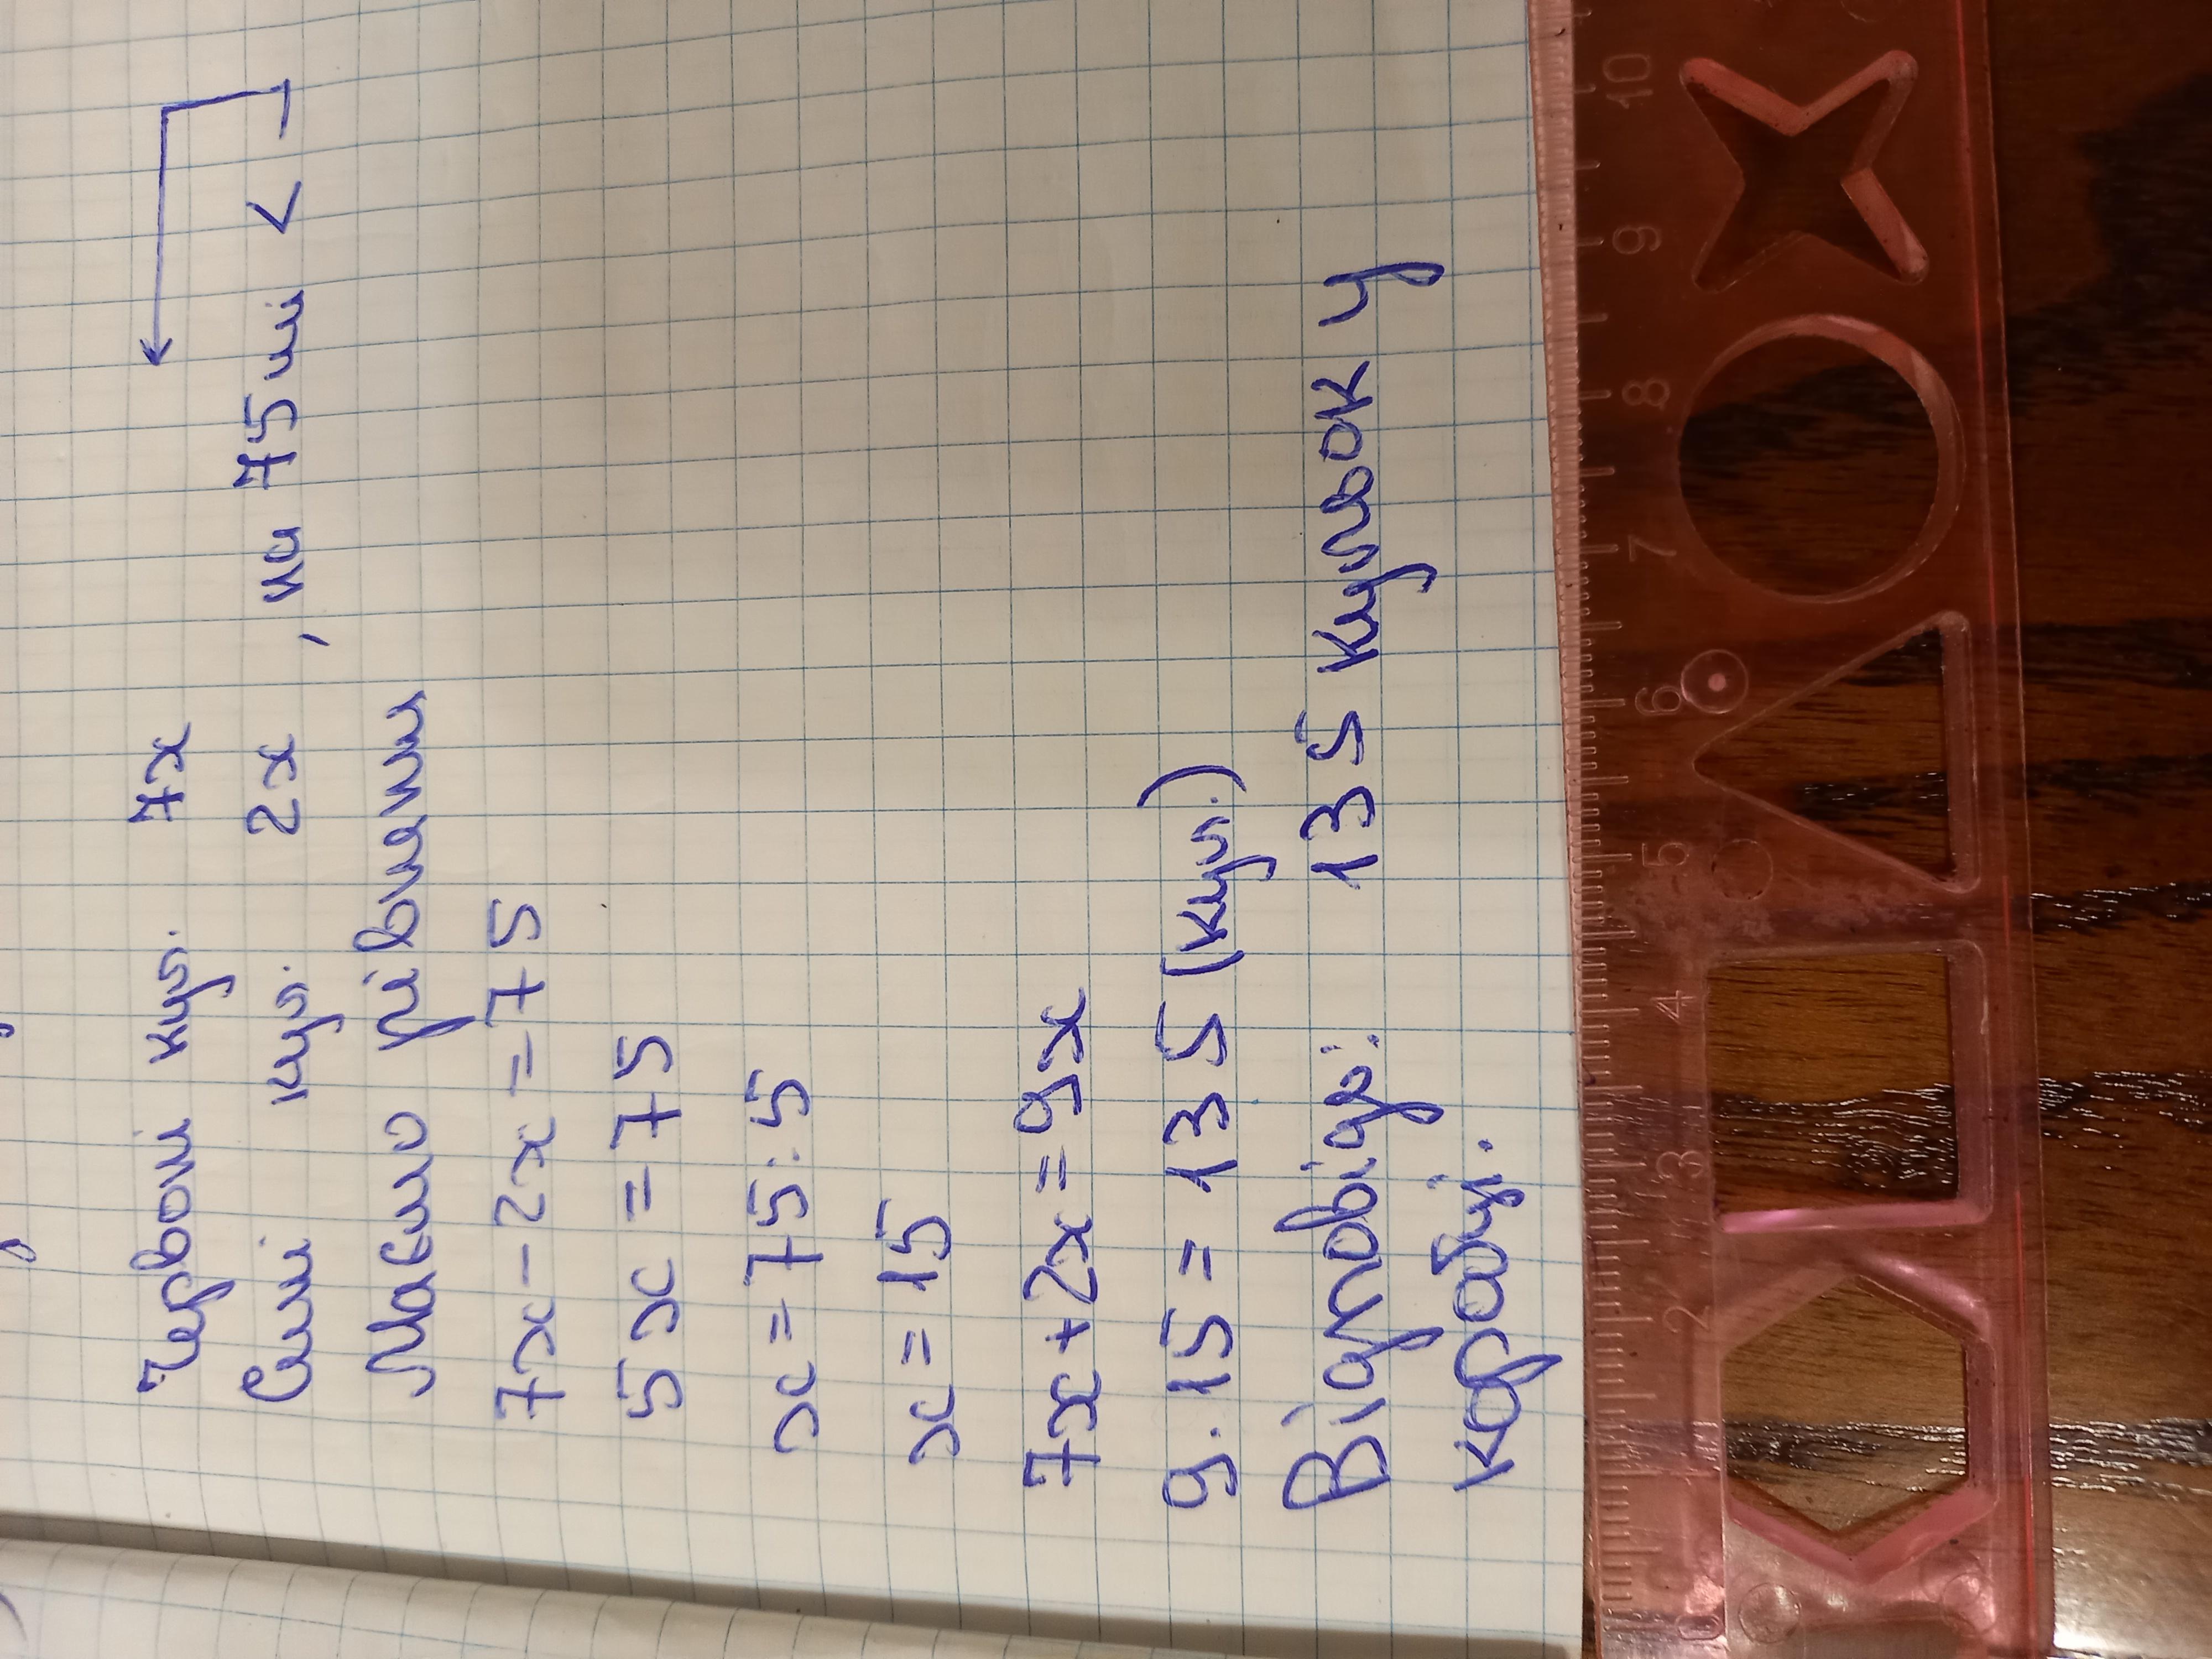 Червоні кул. 7x
Сині кул. 2x , на 75 ші <
Маємо рівняння
7x - 2x = 75
5x = 75
x = 75 : 5
x = 15
7x + 2x = 9x
9 · 15 = 135 (кул.)
Відповідь: 135 кульок у
коробці.
0 1 2 3 4 5 6 7 8 9 10